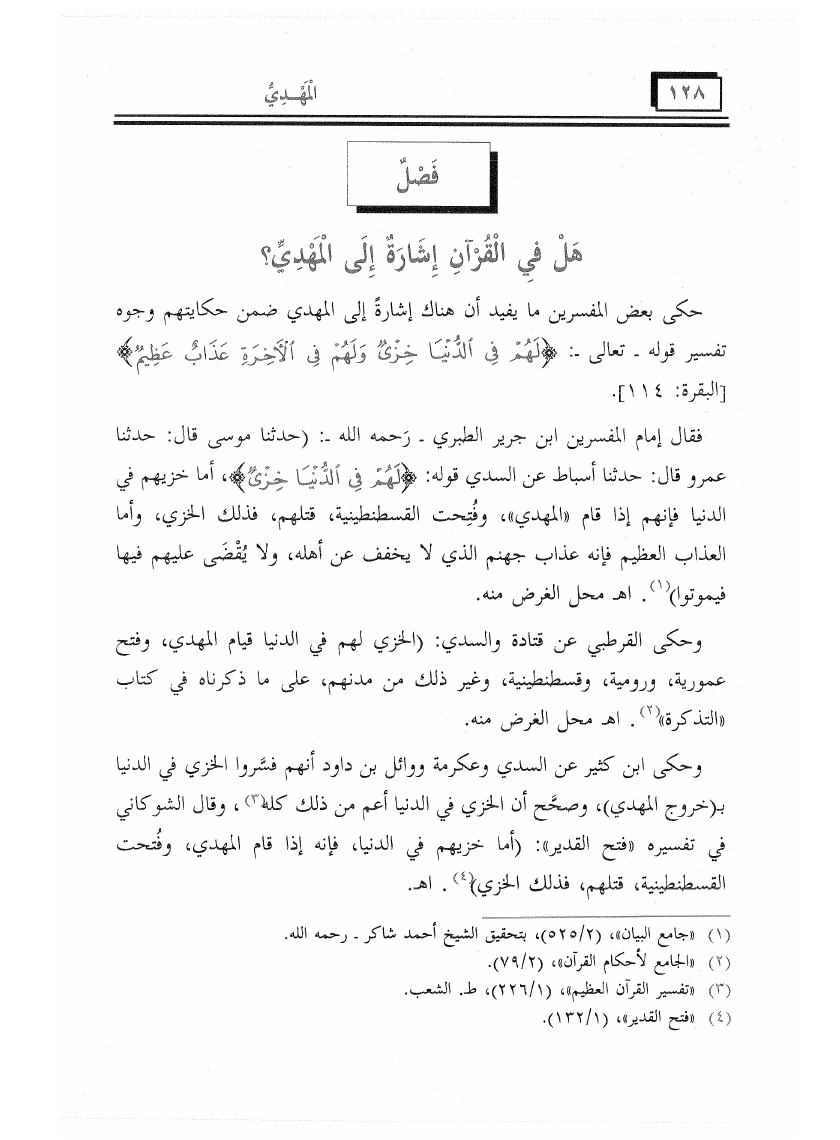 ١٢٨
الْمَهْـدِيُّ
فَصْلٌ
هَلْ فِي الْقُرْآنِ إِشَارَةٌ إِلَى الْمَهْدِيِّ؟
حكى بعض المفسرين ما يفيد أن هناك إشارةً إلى المهدي ضمن حكايتهم وجوه
تفسير قوله ـ تعالى ـ: ﴿لَهُمْ فِى ٱلدُّنْيَا خِزْىٌ وَلَهُمْ فِى ٱلْأَخِرَةِ عَذَابٌ عَظِيمٌ﴾
[البقرة: ١١٤].
فقال إمام المفسرين ابن جرير الطبري ـ رَحمه الله ـ: (حدثنا موسى قال: حدثنا
عمرو قال: حدثنا أسباط عن السدي قوله: ﴿لَهُمْ فِى ٱلدُّنْيَا خِزْىٌ﴾، أما خزيهم في
الدنيا فإنهم إذا قام «المهدي»، وفُتِحت القسطنطينية، قتلهم، فذلك الخزي، وأما
العذاب العظيم فإنه عذاب جهنم الذي لا يخفف عن أهله، ولا يُقْضَى عليهم فيها
فيموتوا)(١). اهـ محل الغرض منه.
وحكى القرطبي عن قتادة والسدي: (الخزي لهم في الدنيا قيام المهدي، وفتح
عمورية، ورومية، وقسطنطينية، وغير ذلك من مدنهم، على ما ذكرناه في كتاب
«التذكرة»(٢). اهـ محل الغرض منه.
وحكى ابن كثير عن السدي وعكرمة ووائل بن داود أنهم فسَّروا الخزي في الدنيا
بـ(خروج المهدي)، وصحَّح أن الخزي في الدنيا أعم من ذلك كله(٣)، وقال الشوكاني
في تفسيره «فتح القدير»: (أما خزيهم في الدنيا، فإنه إذا قام المهدي، وفُتحت
القسطنطينية، قتلهم، فذلك الخزي)(٤). اهـ.
(١) «جامع البيان»، (٥٢٥/٢)، بتحقيق الشيخ أحمد شاكر ـ رحمه الله.
(٢) «الجامع لأحكام القرآن»، (٧٩/٢).
(٣) «تفسير القرآن العظيم»، (٢٢٦/١)، ط. الشعب.
(٤) «فتح القدير»، (١٣٢/١).